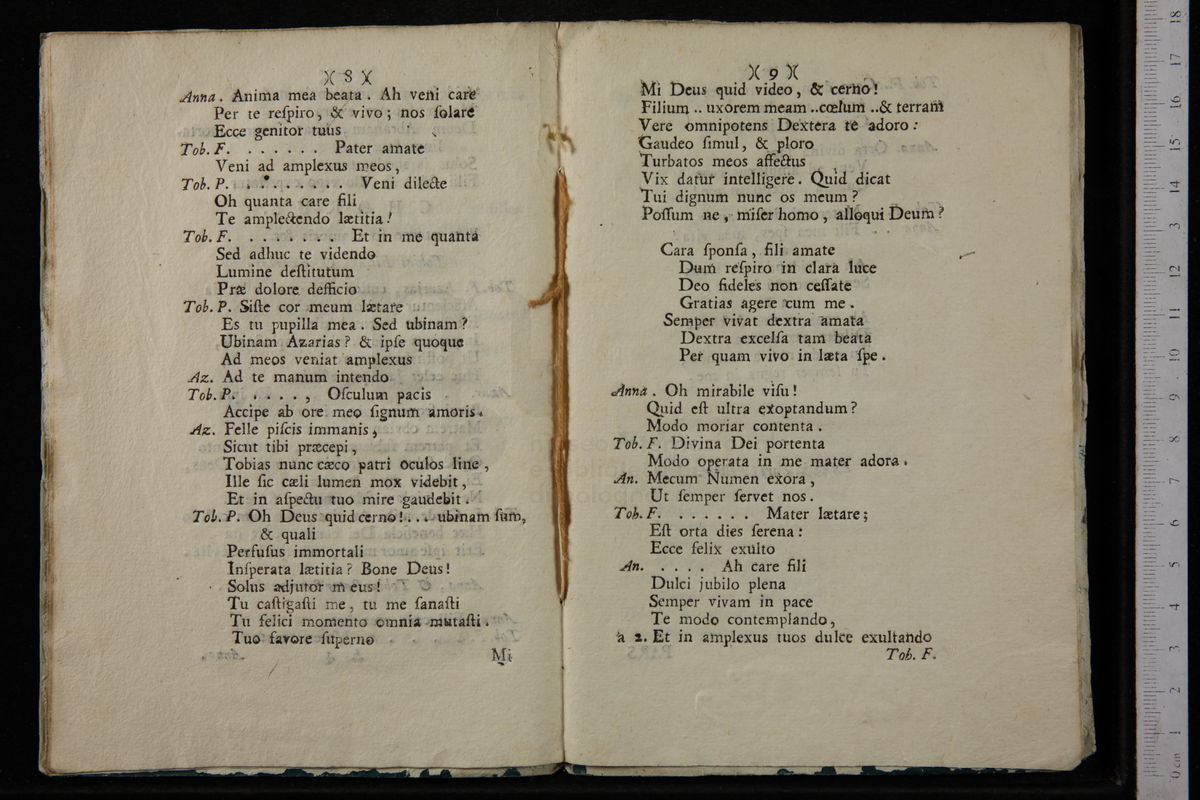 )( 8 )(
Anna . Anima mea beata . Ah veni care
Per te reſpiro, & vivo ; nos ſolare
Ecce genitor tuus
Tob. F. . . . . . . Pater amate
Veni ad amplexus meos ,
Tob. P. . . . . . . . . Veni dilecte
Oh quanta care fili
Te amplectendo lætitia !
Tob. F. . . . . . . . Et in me quanta
Sed adhuc te videndo
Lumine deſtitutum
Præ dolore defficio
Tob. P. Siſte cor meum lætare
Es tu pupilla mea . Sed ubinam ?
Ubinam Azarias ? & ipſe quoque
Ad meos veniat amplexus
Az. Ad te manum intendo
Tob. P. . . . . , Oſculum pacis
Accipe ab ore meo ſignum amoris .
Az. Felle piſcis immanis ,
Sicut tibi præcepi ,
Tobias nunc cæco patri oculos line ,
Ille ſic cæli lumen mox videbit ,
Et in aſpectu tuo mire gaudebit .
Tob. P. Oh Deus quid cerno ! . . . ubinam ſum,
& quali
Perfuſus immortali
Inſperata lætitia ? Bone Deus !
Solus adjutor m eus !
Tu caſtigaſti me , tu me ſanaſti
Tu felici momento omnia mutaſti .
Tuo favore ſuperno
Mi
)( 9 )(
Mi Deus quid video , & cerno !
Filium .. uxorem meam ..cœlum ..& terram
Vere omnipotens Dextera te adoro :
Gaudeo ſimul , & ploro
Turbatos meos affectus
Vix datur intelligere . Quid dicat
Tui dignum nunc os meum ?
Poſſum ne , miſer homo , alloqui Deum ?
Cara ſponſa , fili amate
Dum reſpiro in clara luce
Deo fideles non ceſſate
Gratias agere cum me .
Semper vivat dextra amata
Dextra excelſa tam beata
Per quam vivo in læta ſpe .
Anna . Oh mirabile viſu !
Quid eſt ultra exoptandum ?
Modo moriar contenta .
Tob. F. Divina Dei portenta
Modo operata in me mater adora .
An. Mecum Numen exora ,
Ut ſemper ſervet nos .
Tob. F. . . . . . . Mater lætare ;
Eſt orta dies ſerena :
Ecce felix exulto
An. . . . . Ah care fili
Dulci jubilo plena
Semper vivam in pace
Te modo contemplando ,
a 2. Et in amplexus tuos dulce exultando
Tob. F.